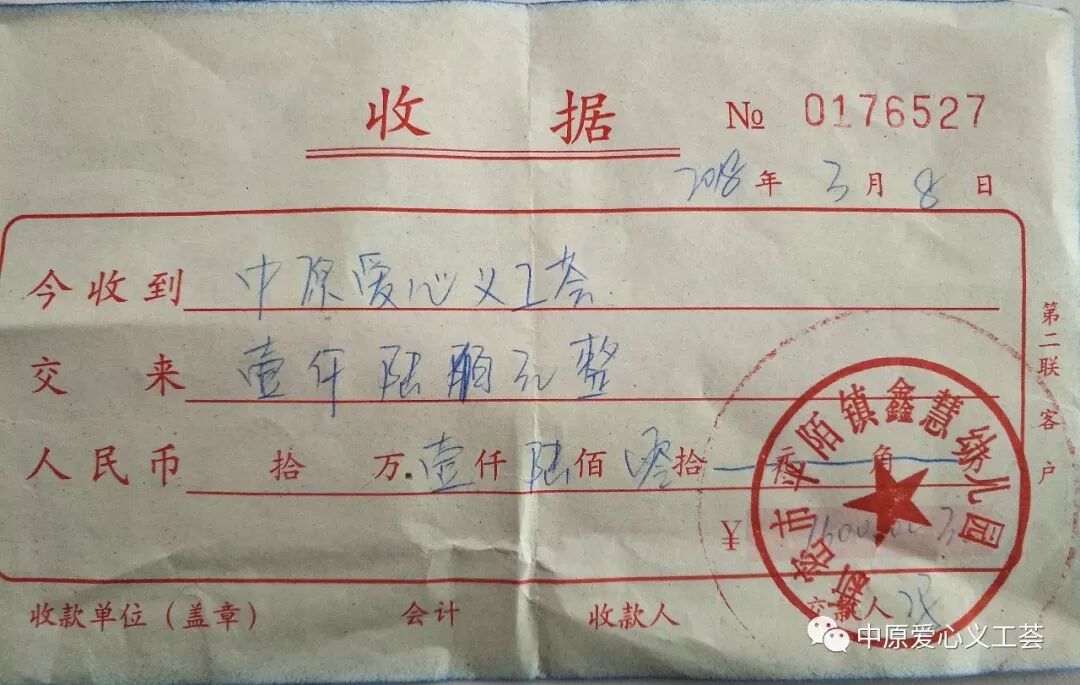 收据 № 0176527
2018年3月8日
今收到 中原爱心义工荟
交来 壹仟陆佰元整
人民币 拾 万 壹仟陆佰零拾 元 角
¥ 1600.00元
收款单位（盖章） 会计 收款人 交款人
第二联 客户
新密市来陌镇鑫慧缘儿园
中原爱心义工荟